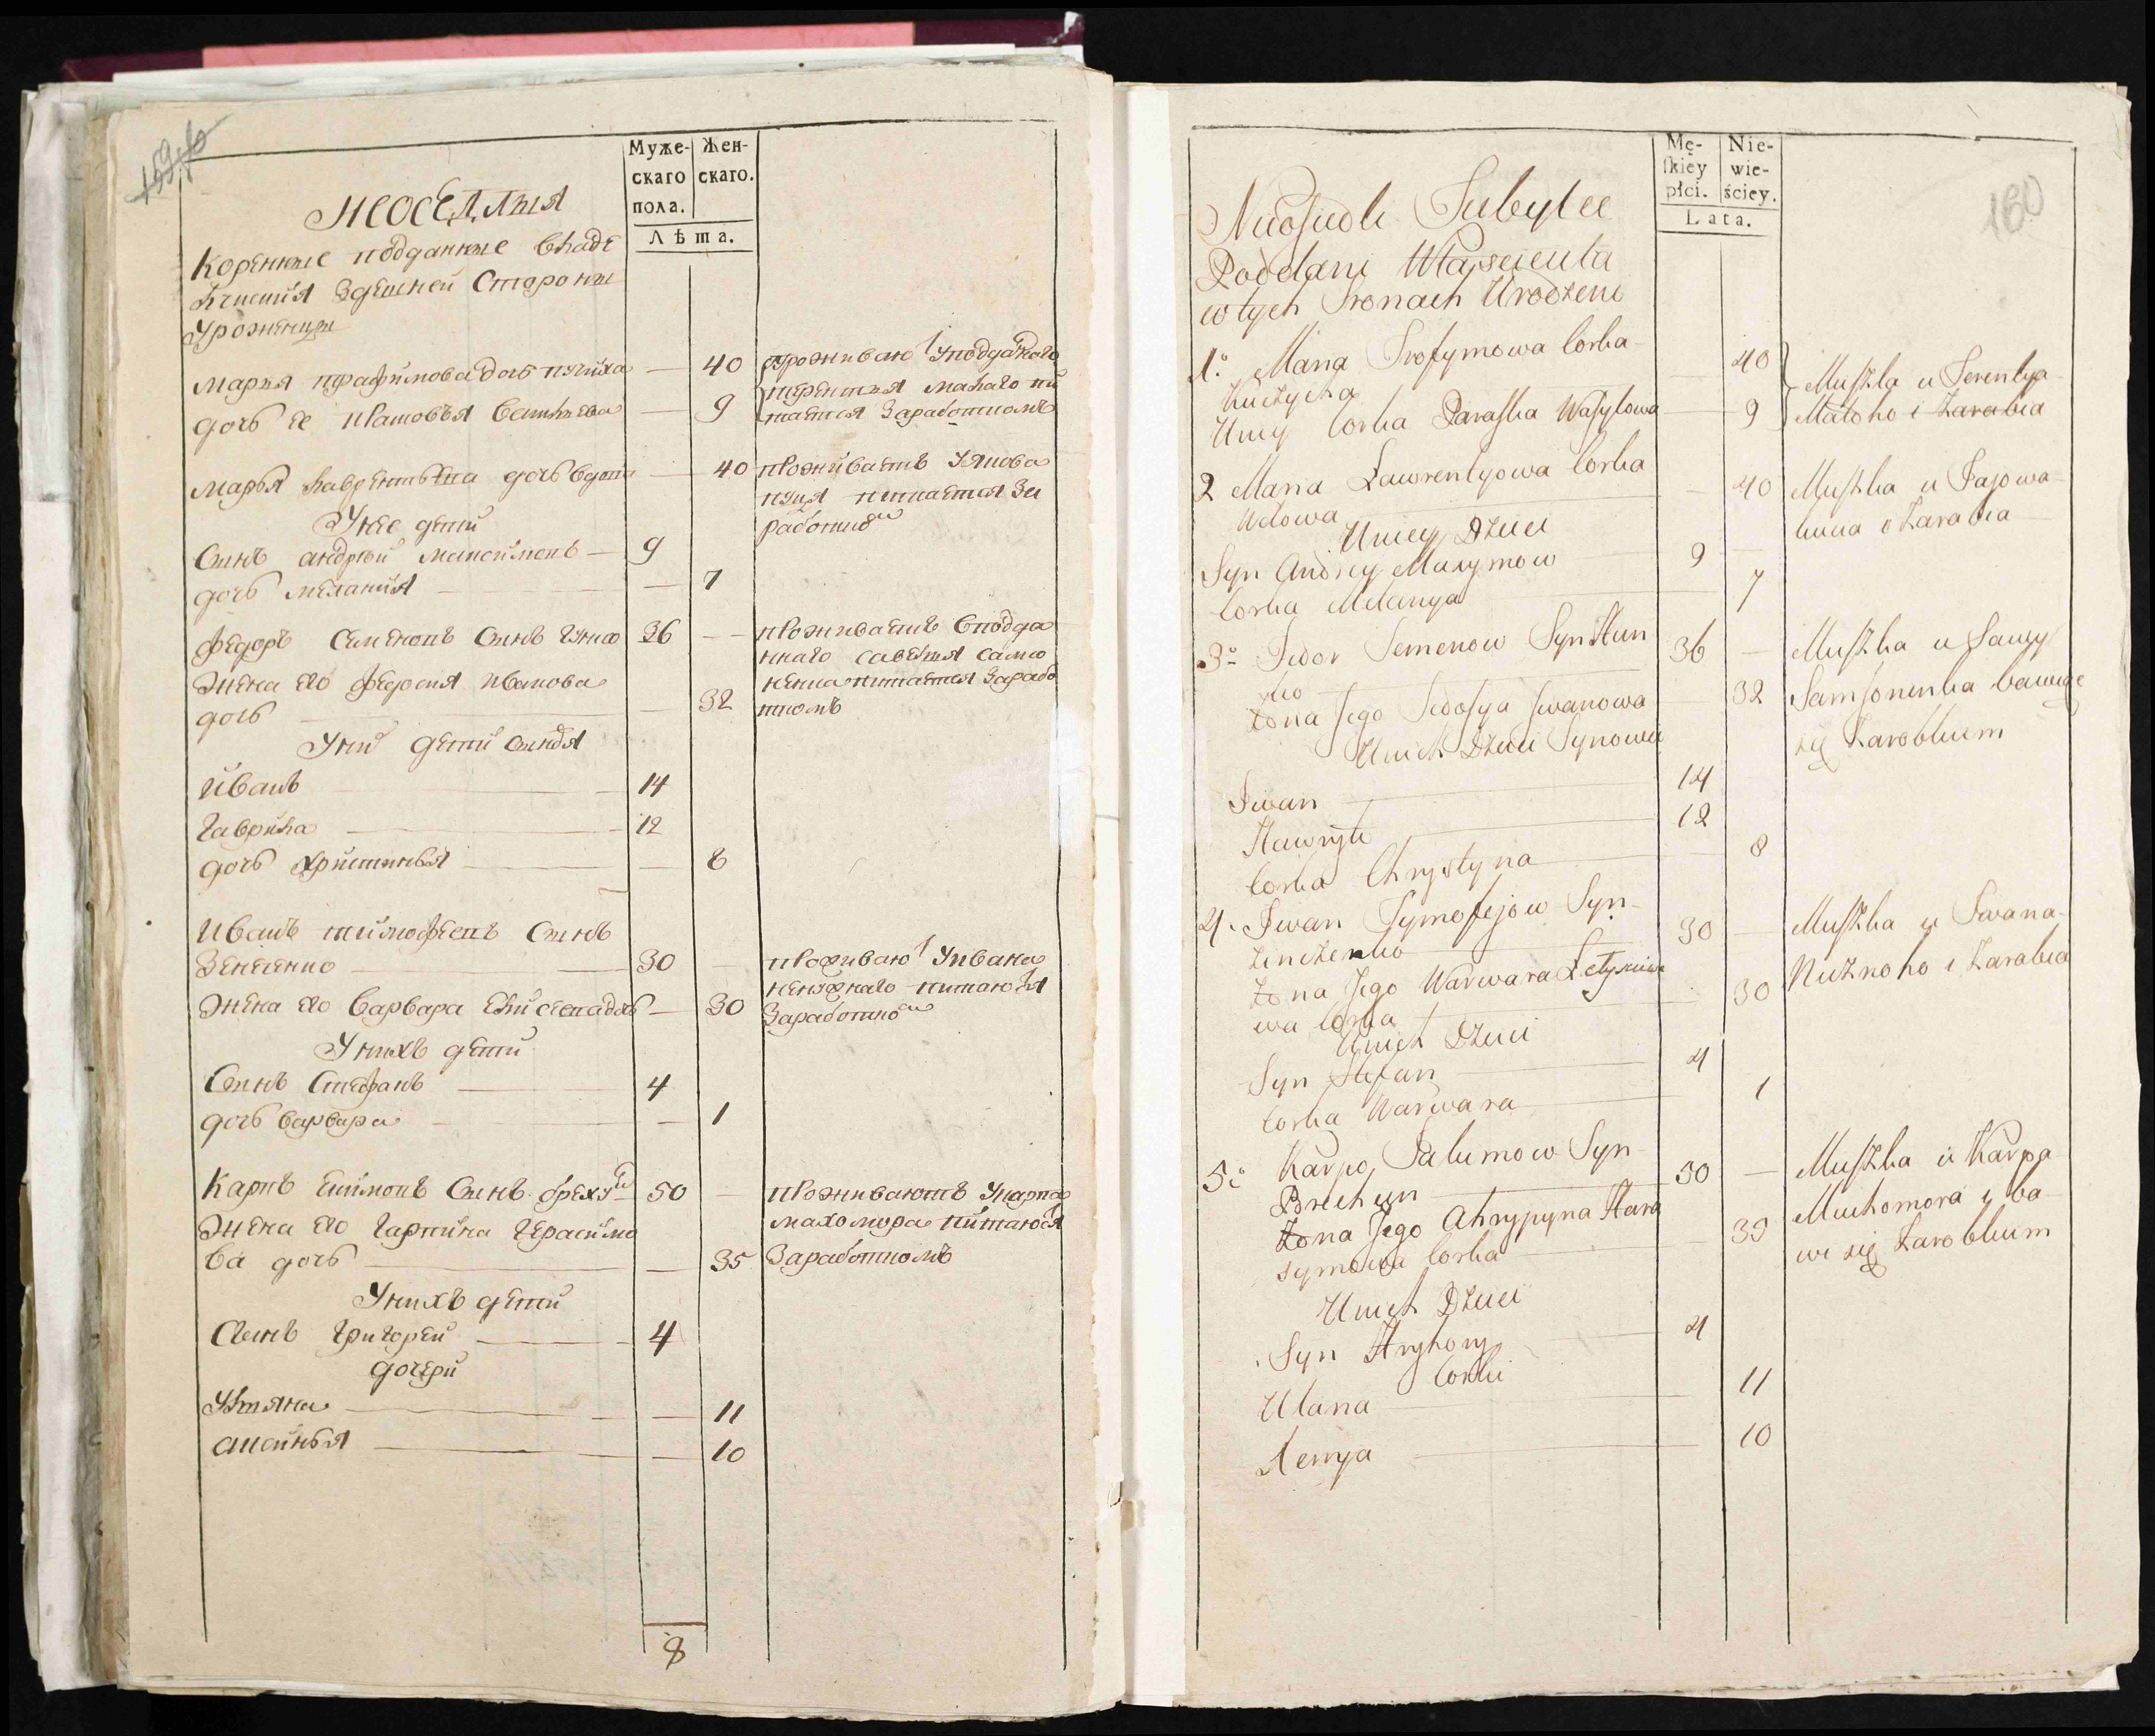 Муже-
скаго
пола.
Жен-
скаго.
Лѣта.
неоседлыя
Коренные подданные владе
лческия здешней стороны
Уроженцы
мария трафимова дочь — 40
дочь ее — 9
проживаю
терентия малаго пи
тается Заработкомъ
марья лаврентьева дочь вдова — 40
проживаетъ
питается За
работко
У нее дети
Сынъ андрюй максимовъ — 9
дочь мелания — 7
федоръ семеновъ Сынъ 36 — —
проживаетъ
ннаго савелия самсо
ненка питается Зарабо
ткомъ
жена его федосия иванова
дочь — 32
У нихъ дети сыновя
иванъ — 14
гаврила — 12
дочь християнья — 8
иванъ тимофеевъ Сынъ
Зенченко — 30 —
проживаю У ивана
ненужнаго питаюся
Заработко
жена его варвара дочь — 30
У нихъ дети
Сынъ Стефанъ — 4
дочь варвара — 1
Карпъ Сынъ брехунъ 50 —
проживаютъ У карпа
махомора питаюся
Заработкомъ
жена его гарпина герасимо
ва дочь — 35
У нихъ дети
Сынъ григорей — 4
дочери
Ульяна — 11
аксинья — 10
8
160
Mę-
skiey
płci.
Nie-
wie-
ściey.
Lata.
Nieosiedli Tubylce
Poddani Właściciela
w tych Stronach Urodzeni
1. Marya Trofymowa Corka — 40
U niey Corka Paraska Wasylowa — 9
Mieszka u Terentya
Małoho i zarabia
2 Marya Lawrentyowa Corka — 40
Wdowa
Mieszka u
i zarabia
U niey Dzieci
Syn Andrey Maxymow — 9 —
Corka Melanya — 7
3. Fedor Semenow Syn Hun 36 —
ko
Mieszka u Sawy
Samsonenka bawiąc
się Zarobkiem
Żona Jego Fedosya Iwanowa — 32
U nich Dzieci Synowie
Iwan — 14
Hawryło — 12
Corka Chrystyna — 8
4. Iwan Tymofejow Syn —
Zinczenko — 30 —
Mieszka u Iwana
Nużnoho i Zarabia
Żona Jego Warwara
wa Corka — 30
U nich Dzieci
Syn Stefan — 4
Corka Warwara — 1
5. Karpo Syn —
Brechun — 50 —
Mieszka u Karpa
Muchomora i ba
wi się Zarobkiem
Żona Jego Ahrypyna Hara
symowa Corka — 35
U nich Dzieci
Syn Hryhory — 4
Corki
Ulana — 11
Xenya — 10